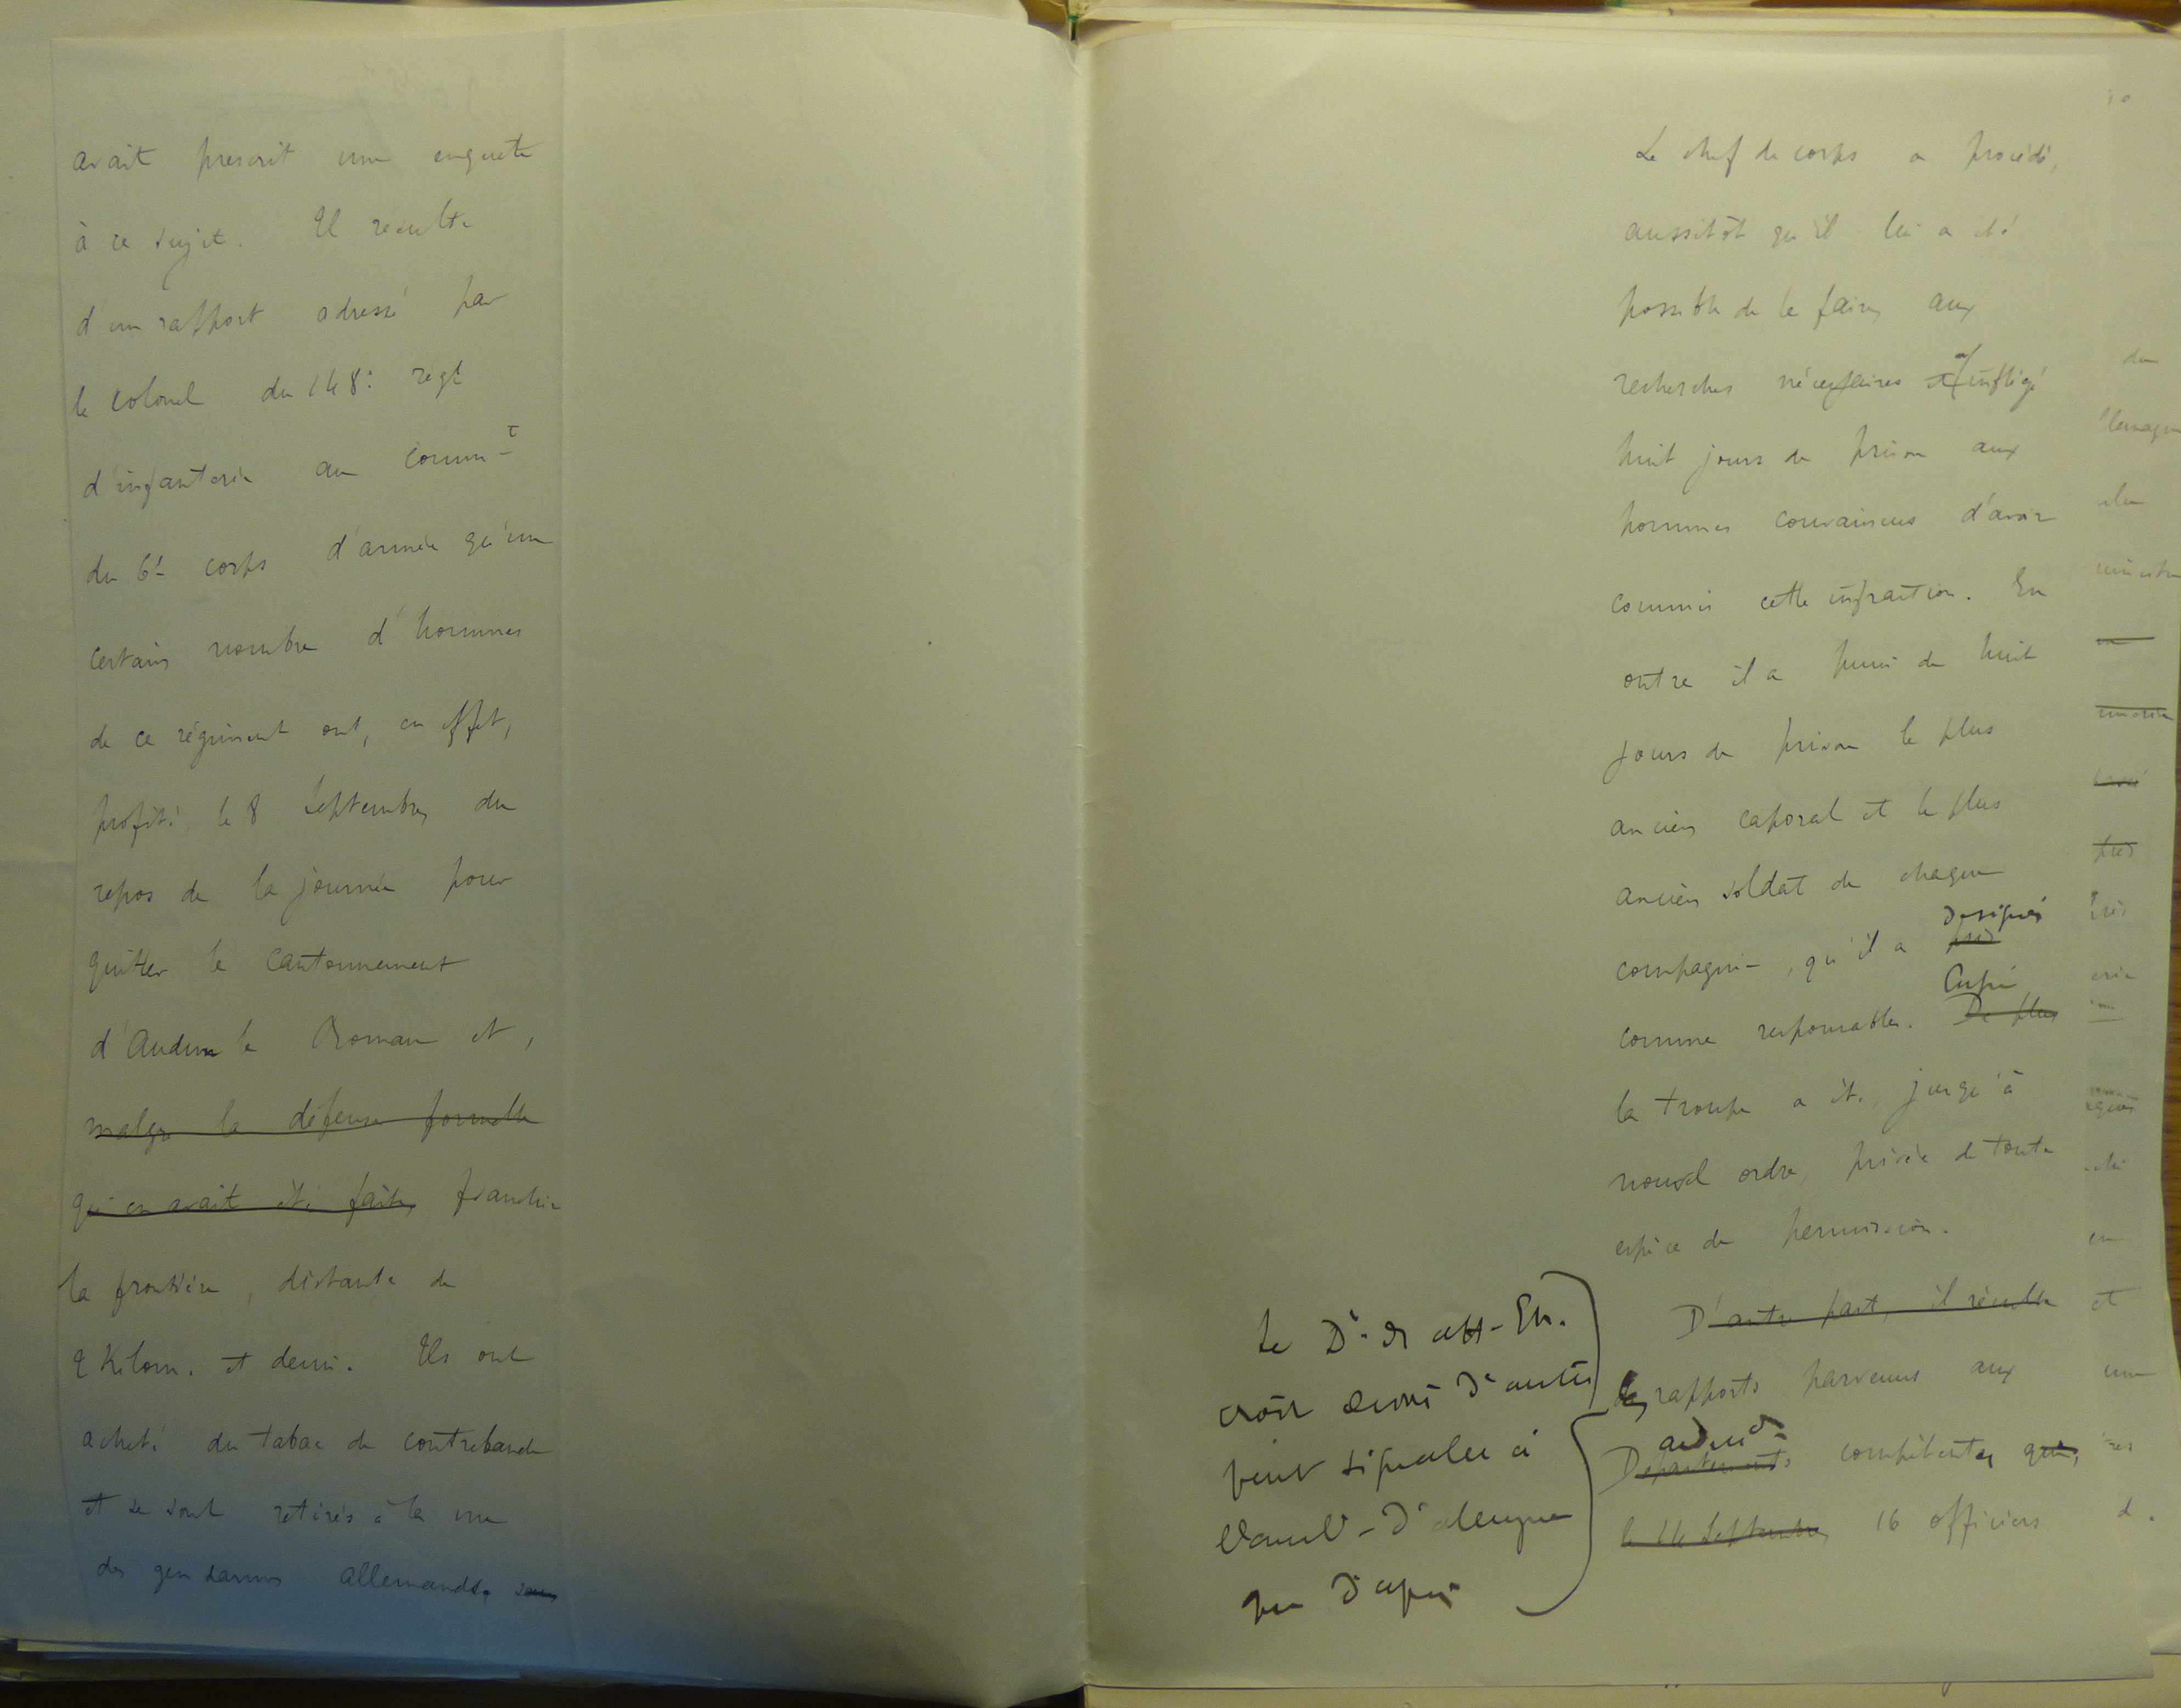 avait prescrit une enquête
à ce sujet. Il résulte
d'un rapport adressé par
le colonel du 148e régt
d'infanterie au commt
du 6e corps d'armée qu'un
certain nombre d'hommes
de ce régiment ont, en effet,
profité, le 8 Septembre, du
repos de la journée pour
quitter le cantonnement
d'Audun le Roman et,
malgré la défense formelle
qui en avait été faite, franchir
la frontière, distante de
2 Kilom. et demi. Ils ont
acheté du tabac de contrebande
et se sont retirés à la vue
des gendarmes allemands.
Le chef de corps a procédé,
aussitôt qu'il lui a été
possible de le faire, aux
recherches nécessaires et a infligé
huit jours de prison aux
hommes convaincus d'avoir
commis cette infraction. En
outre il a puni de huit
jours de prison le plus
ancien caporal et le plus
ancien soldat de chaque
désignés
compagnie, qu'il a pris
Enfin
comme responsables. De plus
la troupe a été, jusqu'à
nouvel ordre, privée de toute
espèce de permission.
D'autre part, il résulte
des rapports parvenus aux
Départements compétents que,
le 14 Septembre, 16 officiers
Le Dt. des aff. Etr.
croit devoir d'autre
part signaler à
l'Amb. d'Allemagne
que d'après